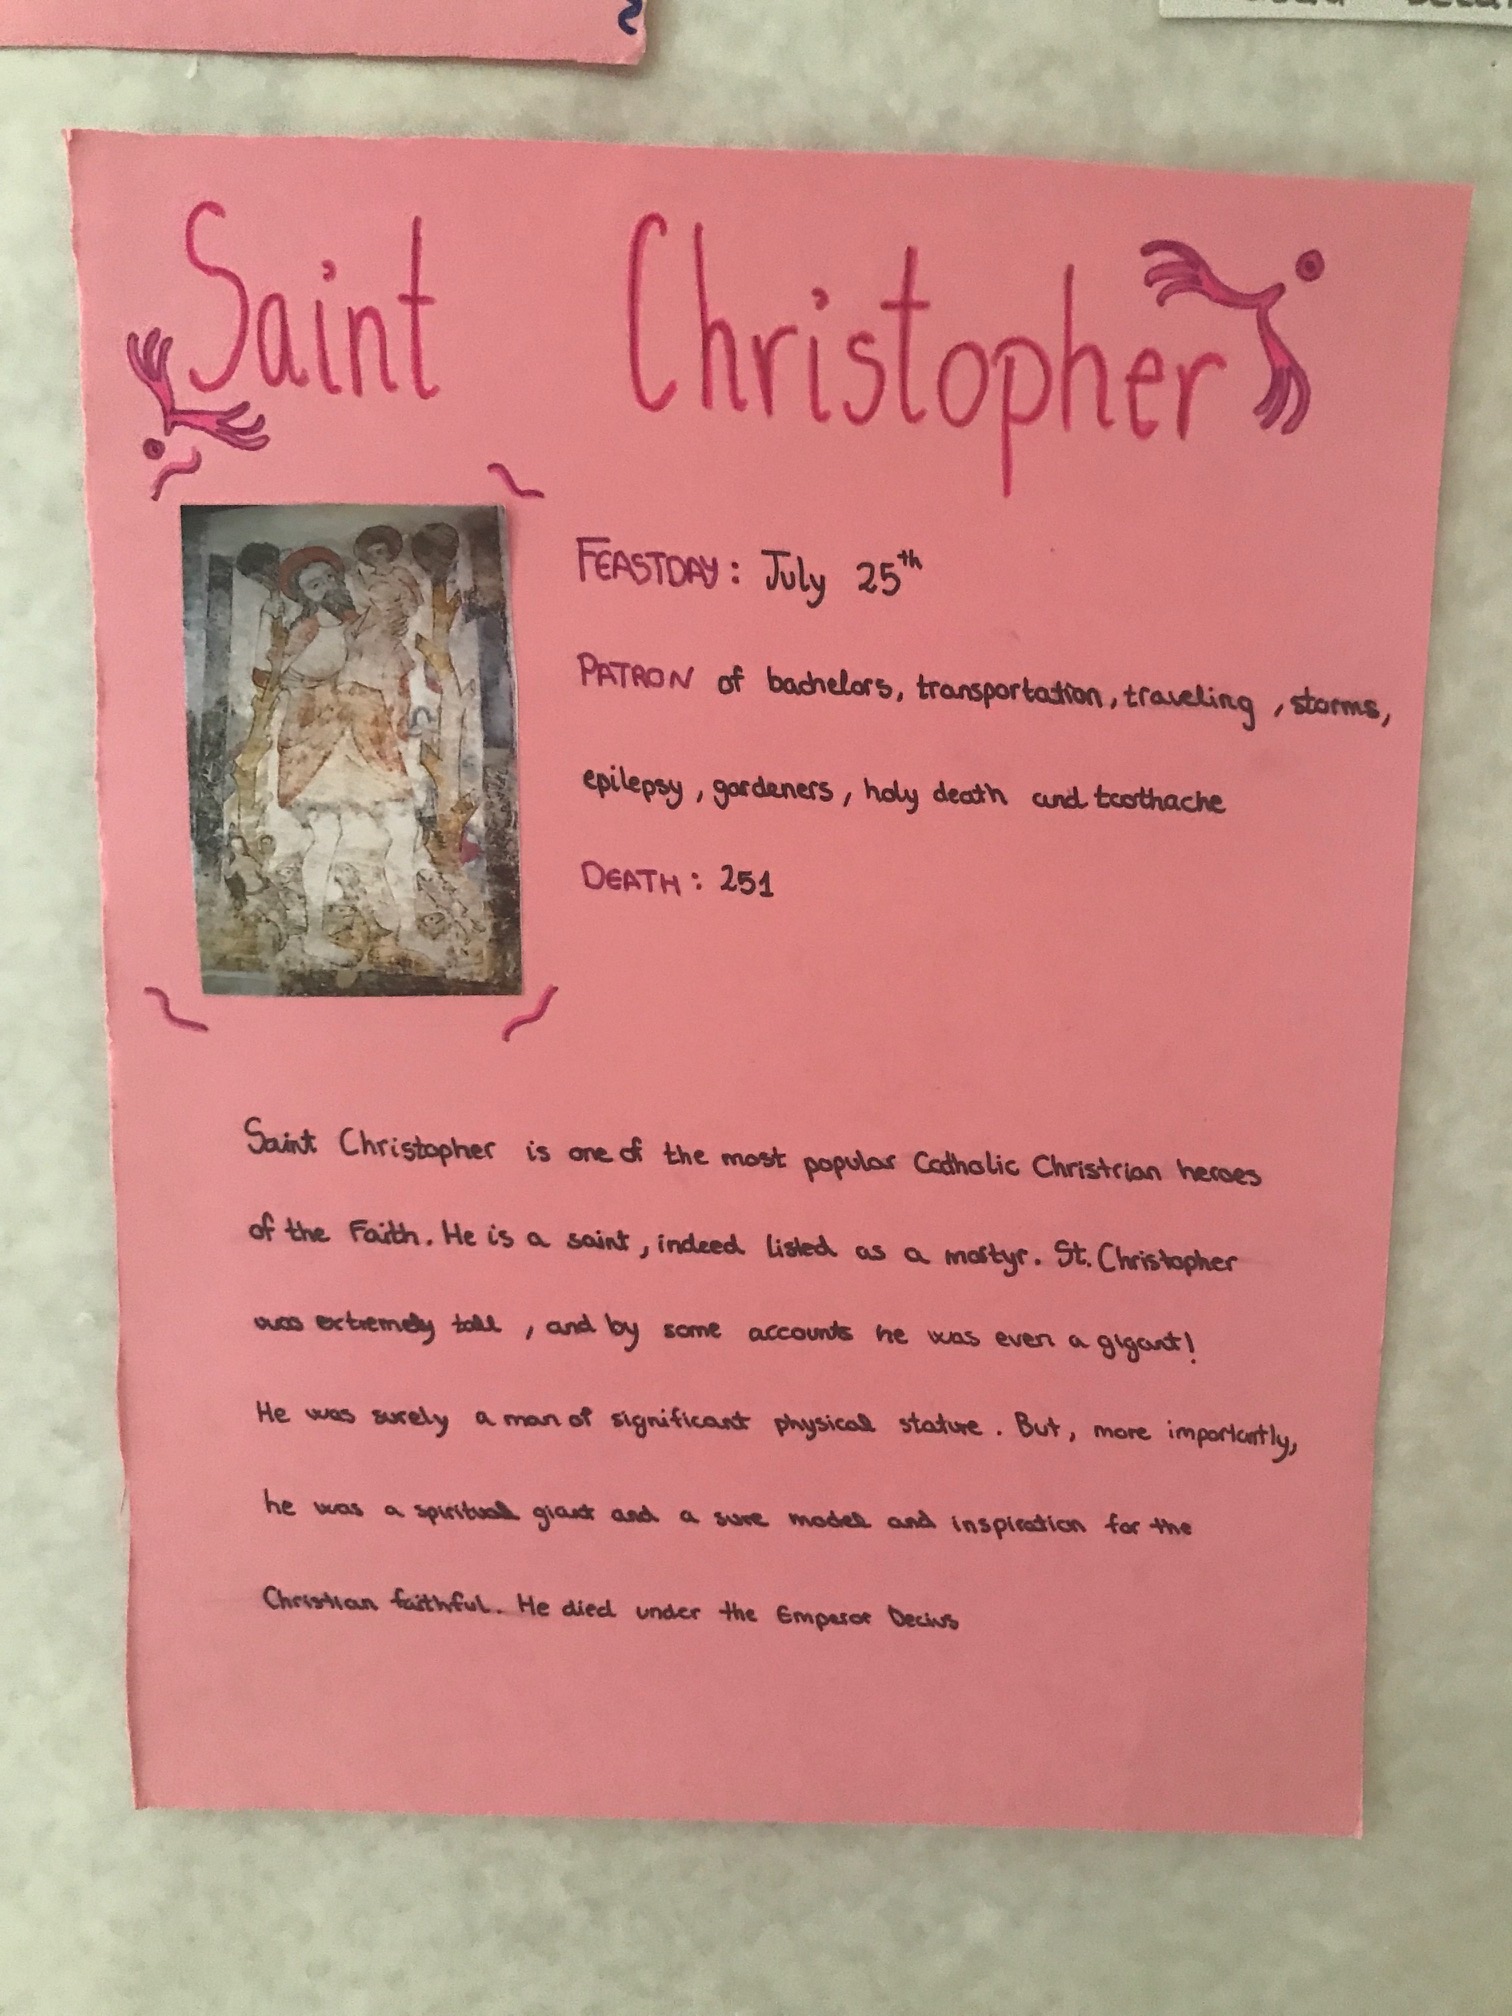 Saint Christopher
FEASTDAY: July 25th
PATRON of bachelors, transportation, traveling, storms,
epilepsy, gardeners, holy death and toothache
DEATH: 251
Saint Christopher is one of the most popular Catholic Christrian heroes
of the Faith. He is a saint, indeed listed as a martyr. St. Christopher
was extremely tall, and by some accounts he was even a gigant!
He was surely a man of significant physical stature. But, more importantly,
he was a spiritual giant and a sure model and inspiration for the
Christian faithful. He died under the Emperor Decius